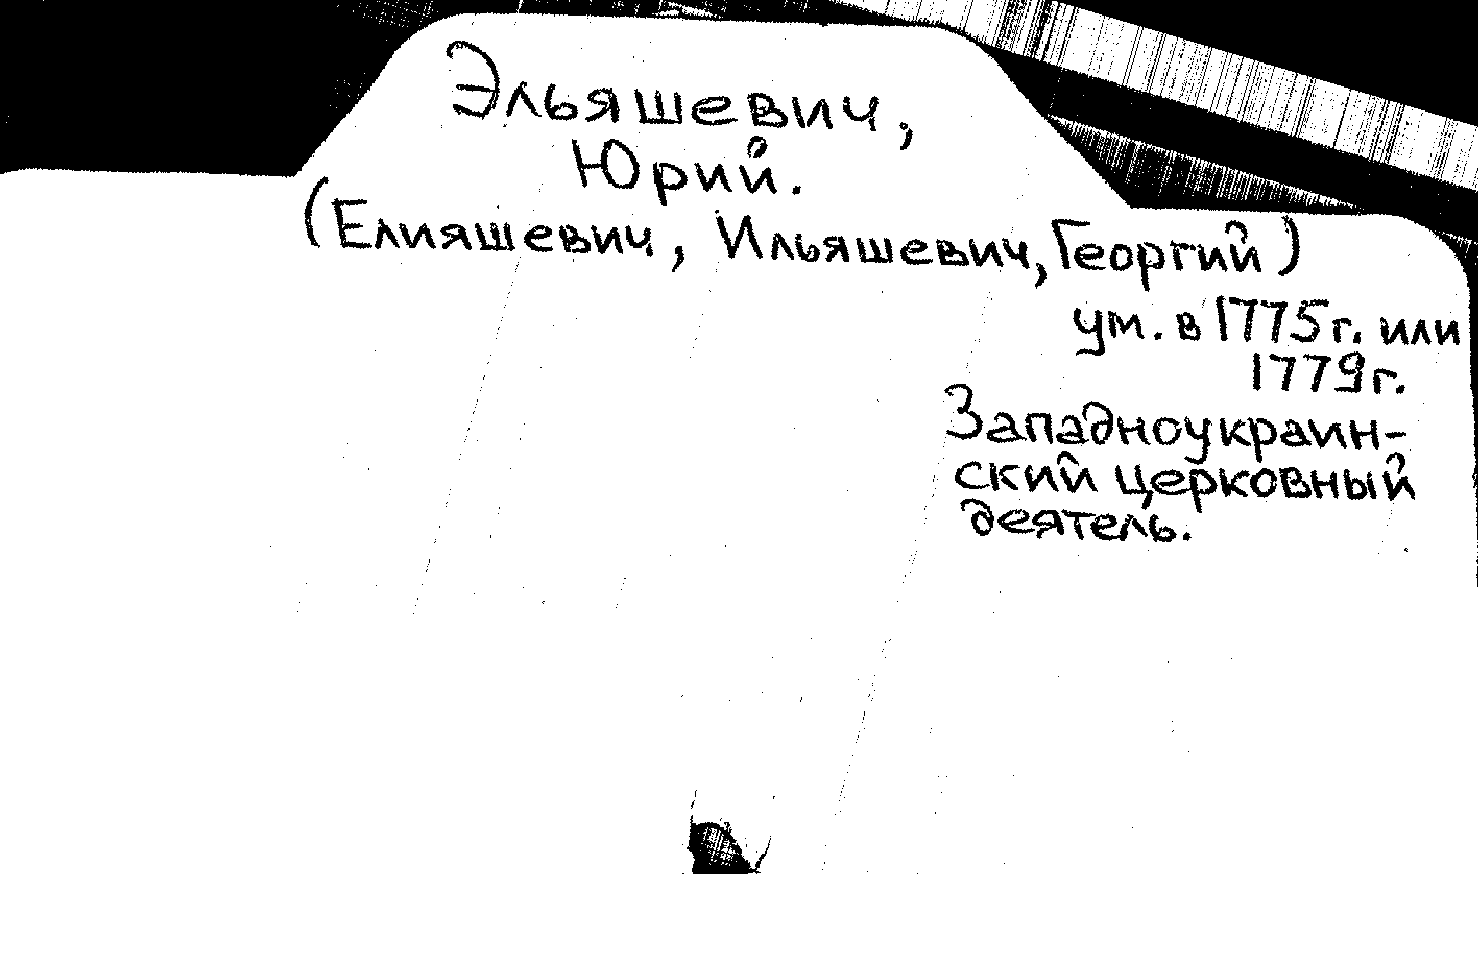 Эльяшевич,
Юрий.
(Елияшевич, Ильяшевич, Георгий)
ум. в 1775г. или
1779г.
Западноукраин-
ский церковный
деятель.